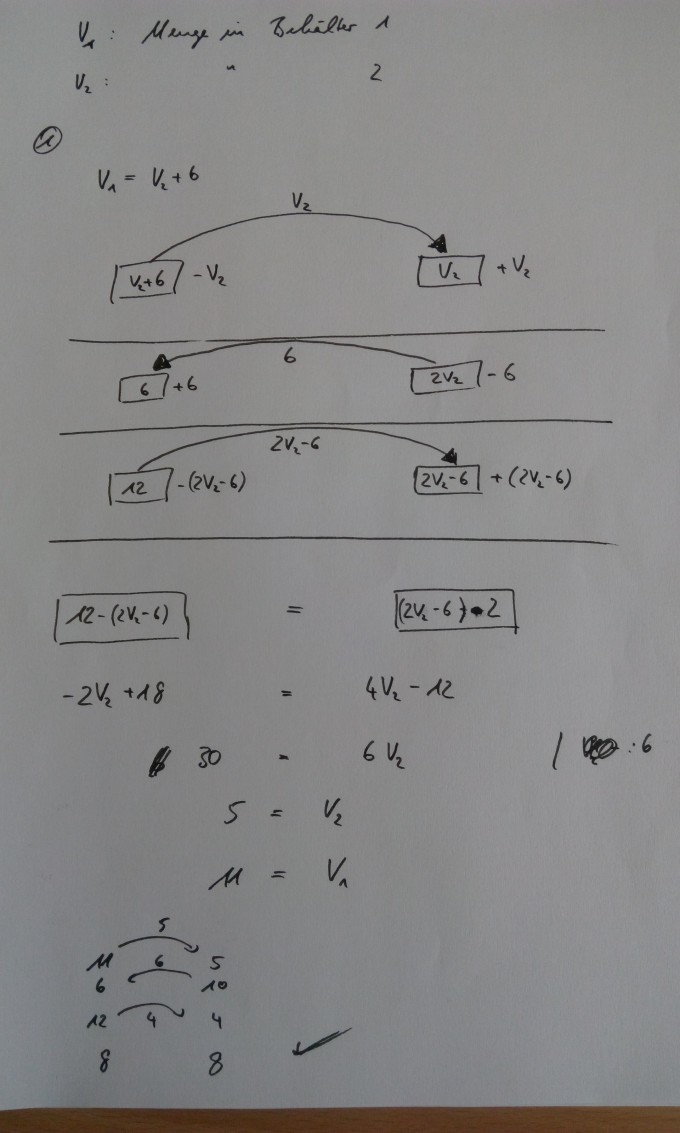 V₁ : Menge in Behälter 1
V₂ : " 2
a
V₁ = V₂ + 6
V₂
V₂+6 - V₂ V₂ + V₂
6
6 + 6 2V₂ - 6
2V₂-6
12 -(2V₂-6) 2V₂-6 + (2V₂-6)
12-(2V₂-6) = (2V₂-6)•2
-2V₂ + 18 = 4V₂ - 12
30 = 6 V₂ | : 6
5 = V₂
11 = V₁
5
11 6 5
6 10
12 4 4
8 8 ✓